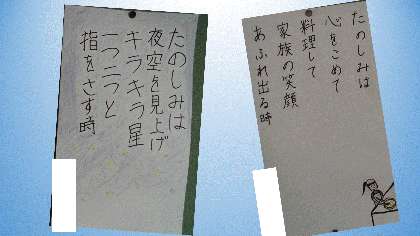 たのしみは
夜空を見上げ
キラキラ星
一つ二つと
指をさす時
たのしみは
心をこめて
料理して
家族の笑顔
あふれ出る時